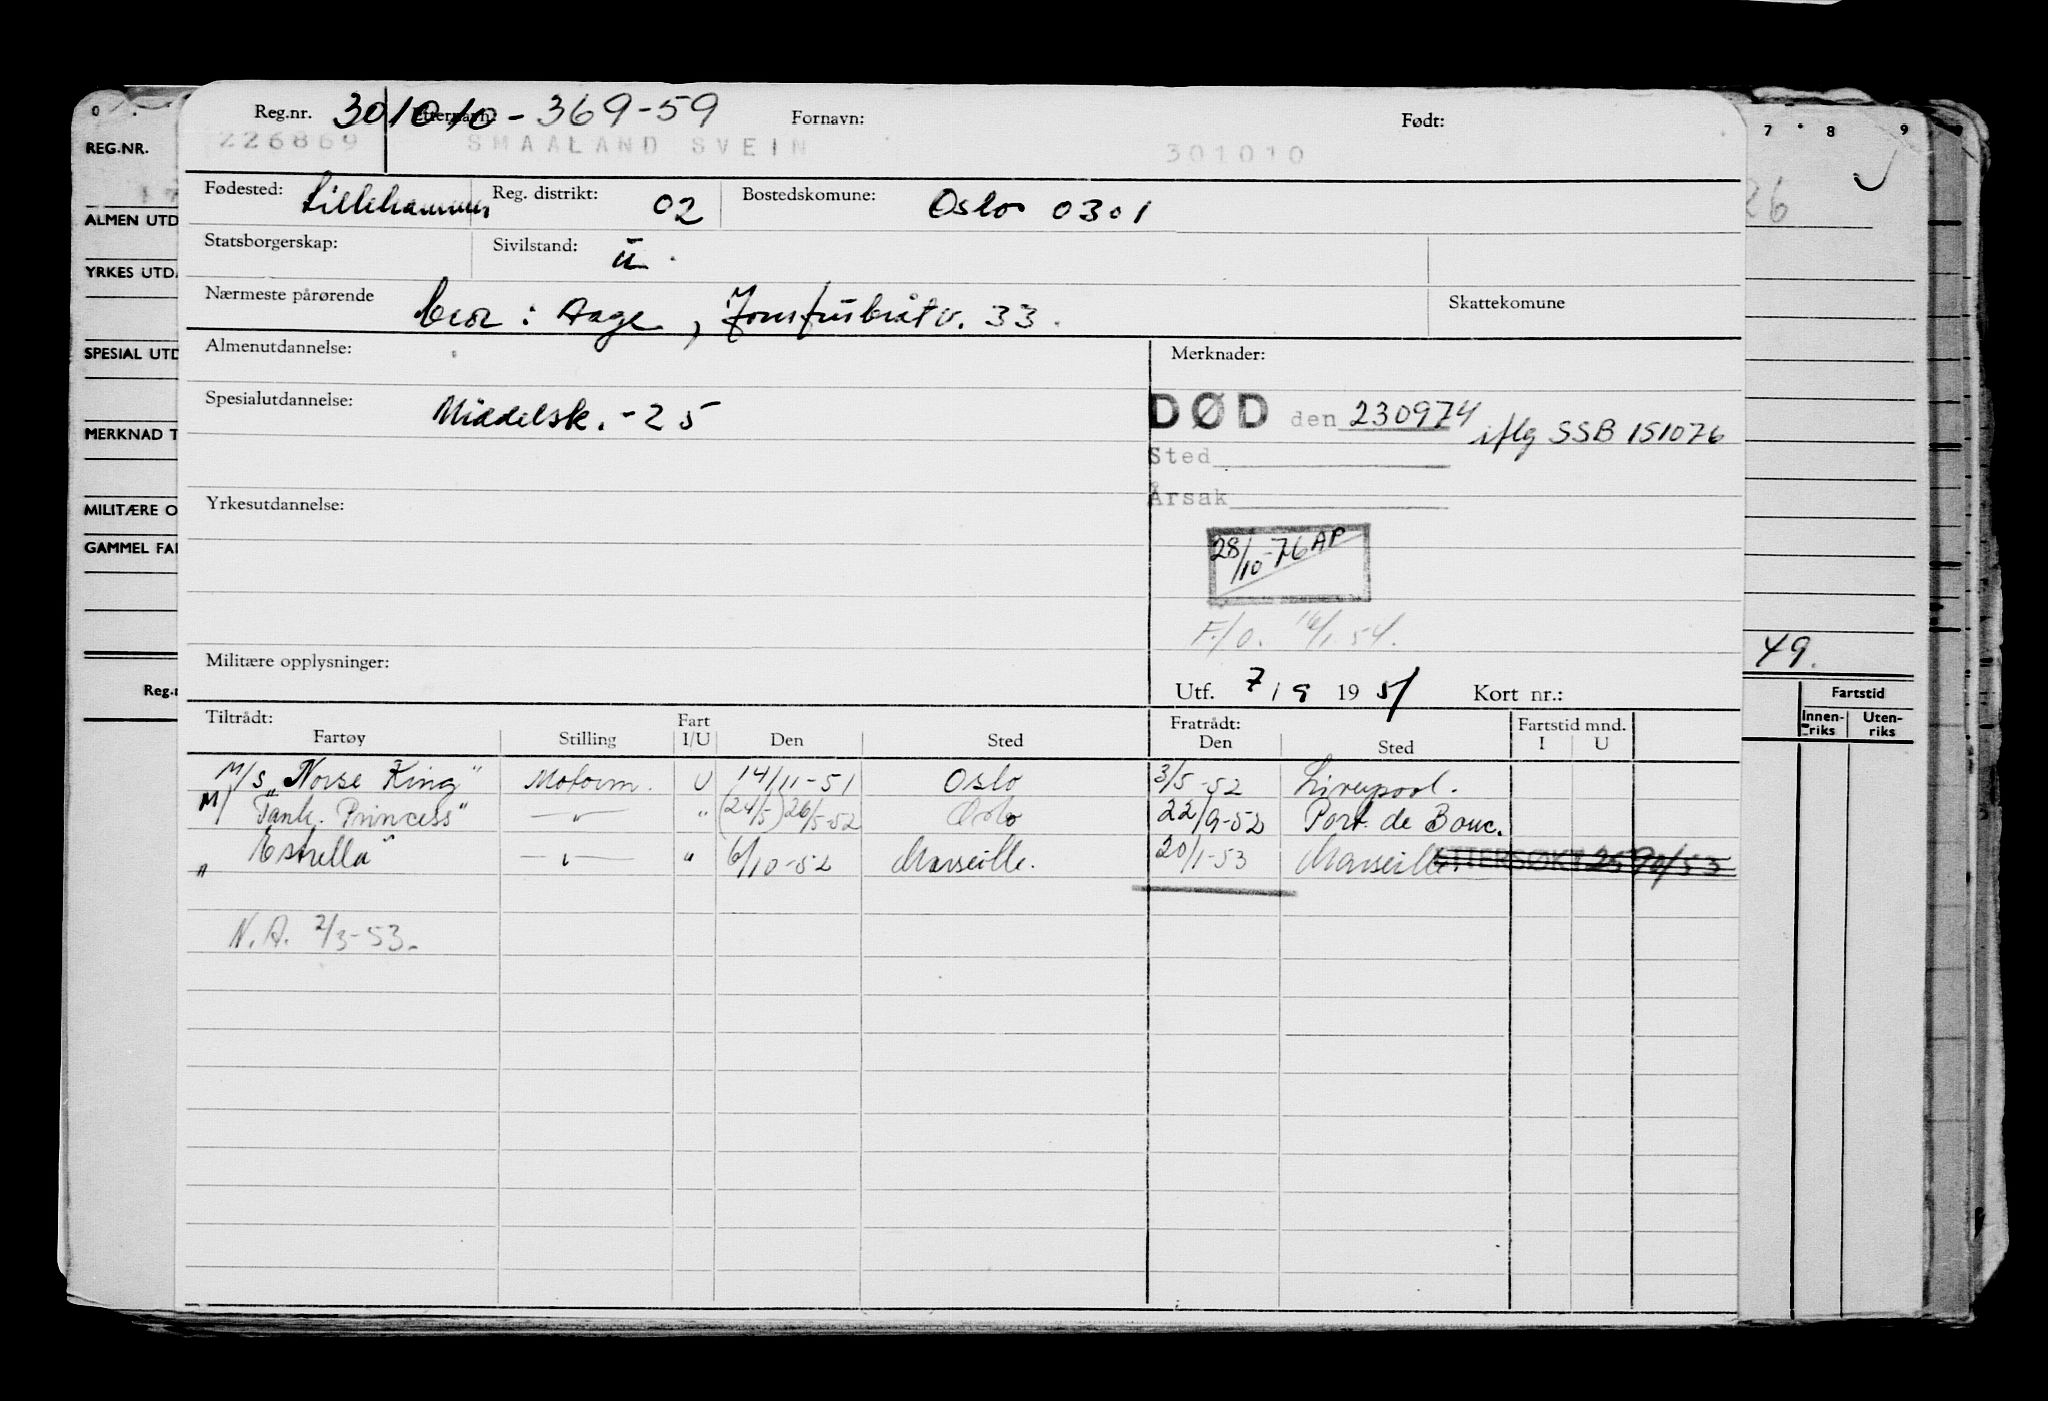 Reg.nr. 301010-369-59 Etternavn: Fornavn: Født:
226869 SMAALAND SVEIN 301010
Fødested: Lillehammer Reg. distrikt: 02 Bostedskomune: Oslo 0301
Statsborgerskap: Sivilstand: u.
Nærmeste pårørende bror: Aage, 33. Skattekomune
Almenutdannelse: Merknader:
Spesialutdannelse: Middelsk. -25 DØD den 230974 iflg SSB 151076
Sted
Årsak
Yrkesutdannelse:
28/10-76 AP
F/O. 16/1.54.
Militære opplysninger:
Utf. 7/9 1951 Kort nr.:
Tiltrådt: Fart Fratrådt: Fartstid mnd.
Fartøy Stilling I/U Den Sted Den Sted I U
M/S "Norse King" Motorm. U 14/11-51 Oslo 3/5-52 Liverpool.
M/ Tank. Princess" -"- " (24/5) 26/5-52 Oslo 22/9-52 Port de Bouc.
" Estrella" -"- " 6/10-52 Marseille. 20/1-53 Marseille ETTERSØKT
N.A. 2/3-53.
0
REG.NR.
ALMEN UTD
YRKES UTDA
SPESIAL UTD
MERKNAD T
MILITÆRE O
GAMMEL FAR
Reg.n
7 8 9
26
49.
Fartstid
Innen-riks Uten-riks